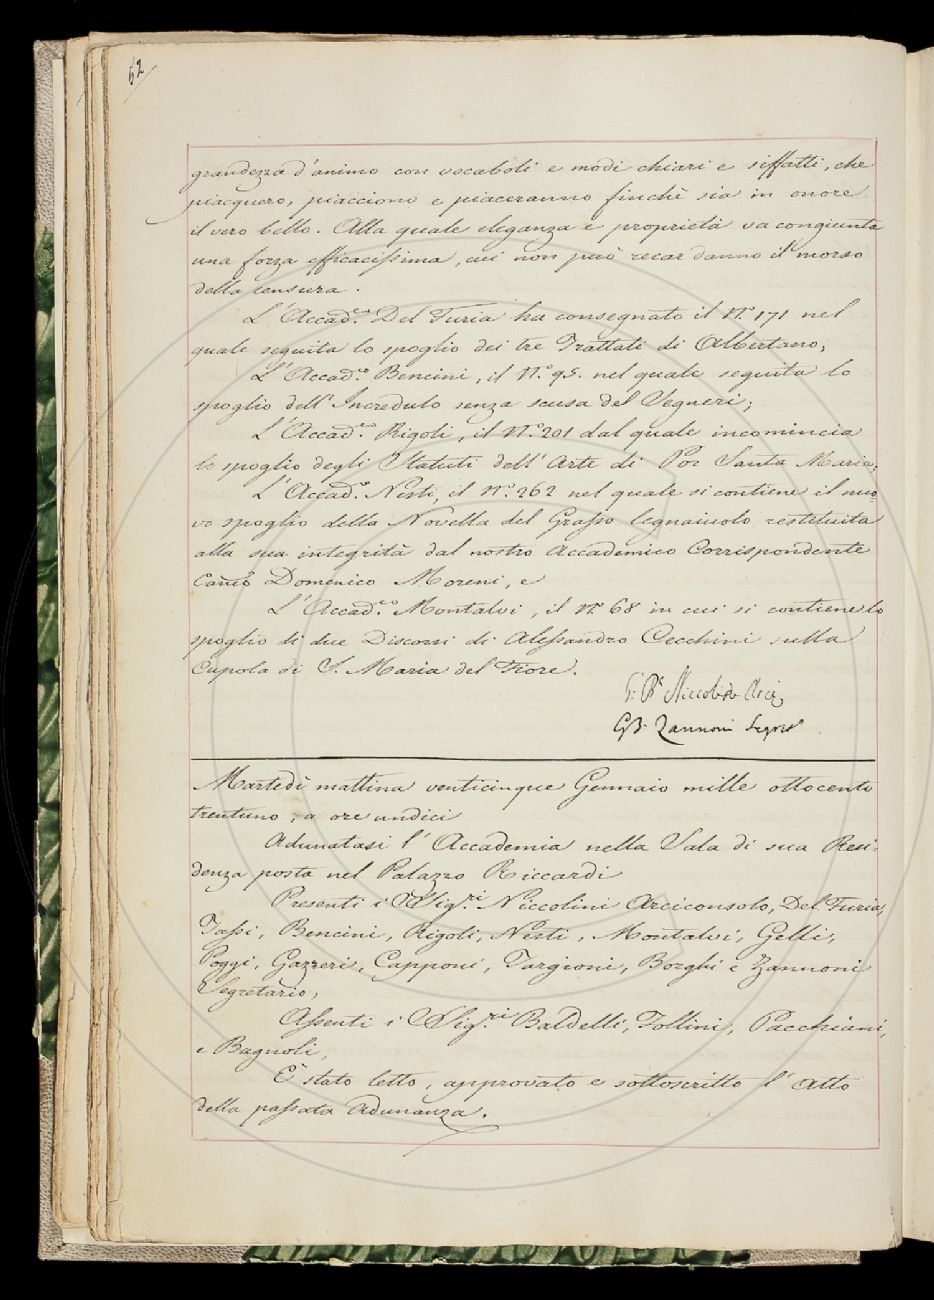 62
grandezza d'animo con vocaboli e modi chiari e siffatti, che
piacquero, piacciono e piaceranno finchè sia in onore
il vero bello. Alla quale eleganza e proprietà va congiunta
una forza efficacissima, cui non può recar danno il morso
della censura.
L'Accad.co Del Furia ha consegnato il N.° 171 nel
quale seguita lo spoglio dei tre Trattati di Albertano;
L'Accad.co Bencini, il N.° 95. nel quale seguita lo
spoglio dell'Incredulo senza scusa del Segneri;
L'Accad.co Rigoli, il N.° 201 dal quale incomincia
lo spoglio degli Statuti dell'Arte di Por Santa Maria;
L'Accad.co Nesti, il N.° 262 nel quale si contiene il nuo-
vo spoglio della Novella del Grasso legnaiuolo restituita
alla sua integrità dal nostro Accademico Corrispondente
Can.co Domenico Moreni, e
L'Accad.co Montalvi, il N.° 68 in cui si contiene lo
spoglio di due Discorsi di Alessandro Cecchini sulla
Cupola di S. Maria del Fiore.
G. B. Niccolini Arci
GB. Zannoni Segret
Martedì mattina venticinque Gennaio mille ottocento
trentuno, a ore undici
Adunatasi l'Accademia nella Sala di sua Resi-
denza posta nel Palazzo Riccardi
Presenti i SSig.ri Niccolini Arciconsolo, Del Furia,
Tassi, Bencini, Rigoli, Nesti, Montalvi, Gelli,
Poggi, Gazzeri, Capponi, Targioni, Borghi e Zannoni
Segretario,
Assenti i SSig.ri Baldelli, Follini, Pacchiani,
e Bagnoli,
È stato letto, approvato e sottoscritto l'Atto
della passata Adunanza.